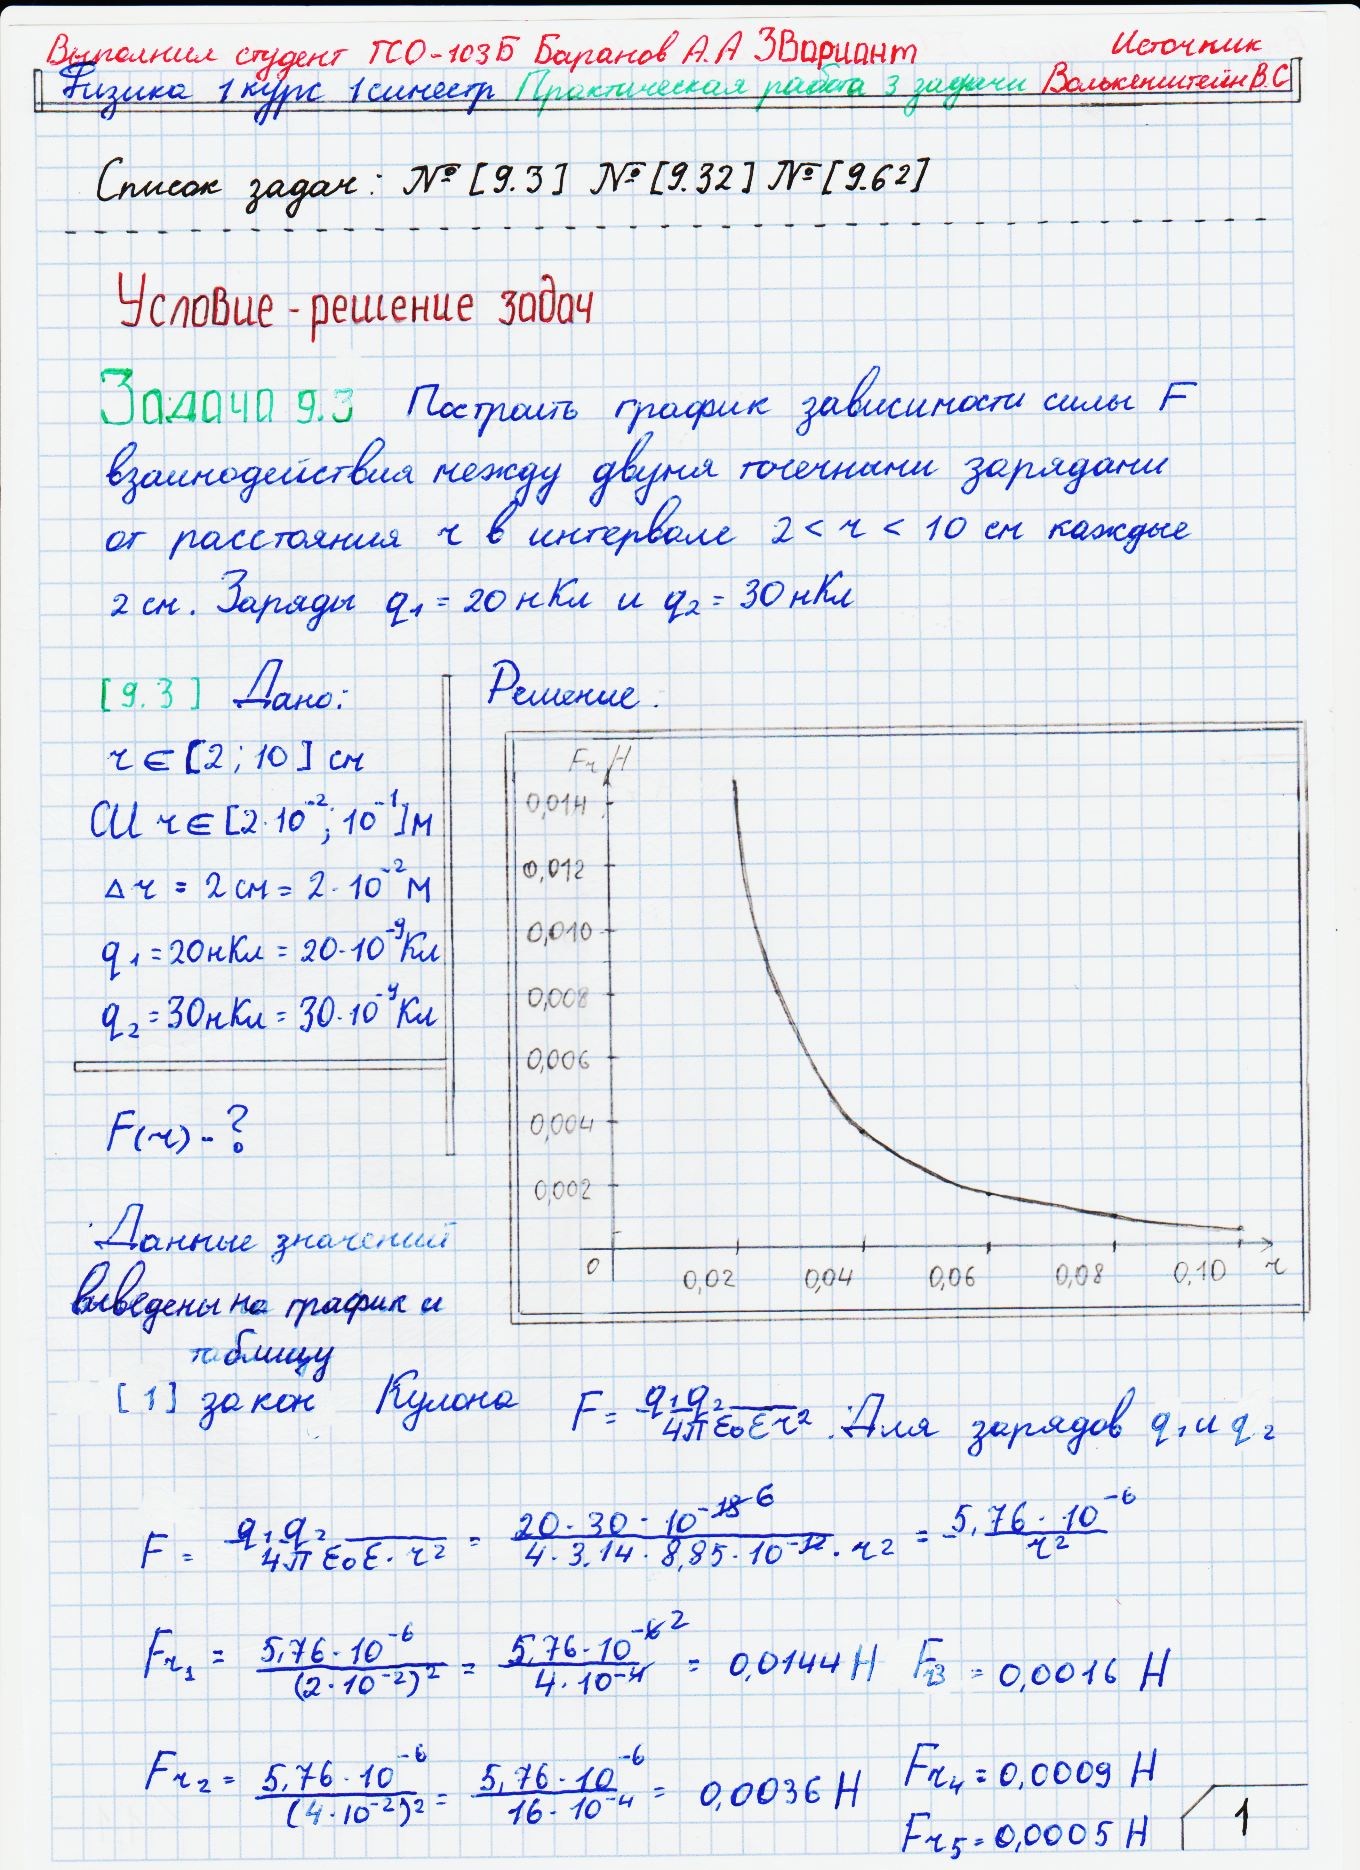 Выполнил студент ПСО-103Б Баранов А.А 3Вариант Источник
Физика 1 курс 1 синестр Практическая работа 3 задачи Волькенштейн В.С
Список задач: № [9.3] № [9.32] № [9.62]
Условие - решение задач
Задача 9.3 Построить график зависимости силы F
взаимодействия между двумя точечными зарядами
от расстояния r в интервале 2 < r < 10 см каждые
2 см. Заряды q1 = 20 нКл и q2 = 30 нКл
[9.3] Дано:
r ∈ [2; 10] см
СИ r ∈ [2·10^-2; 10^-1] м
Δr = 2 см = 2·10^-2 м
q1 = 20нКл = 20·10^-9 Кл
q2 = 30нКл = 30·10^-9 Кл
F(r) - ?
Решение.
Fr H
0,014
0,012
0,010
0,008
0,006
0,004
0,002
0 0,02 0,04 0,06 0,08 0,10 r
Данные значений
выведены на график и
таблицу
[1] закон Кулона F = q1q2 / 4πε0εr². Для зарядов q1 и q2
F = q1q2 / 4πε0ε·r² = 20·30·10^-18 6 / 4·3,14·8,85·10^-12·r² = 5,76·10^-6 / r²
Fr1 = 5,76·10^-6 / (2·10^-2)² = 5,76·10^-6 2 / 4·10^-4 = 0,0144 H Fr3 = 0,0016 H
Fr2 = 5,76·10^-6 / (4·10^-2)² = 5,76·10^-6 / 16·10^-4 = 0,0036 H Fr4 = 0,0009 H
Fr5 = 0,0005 H
1